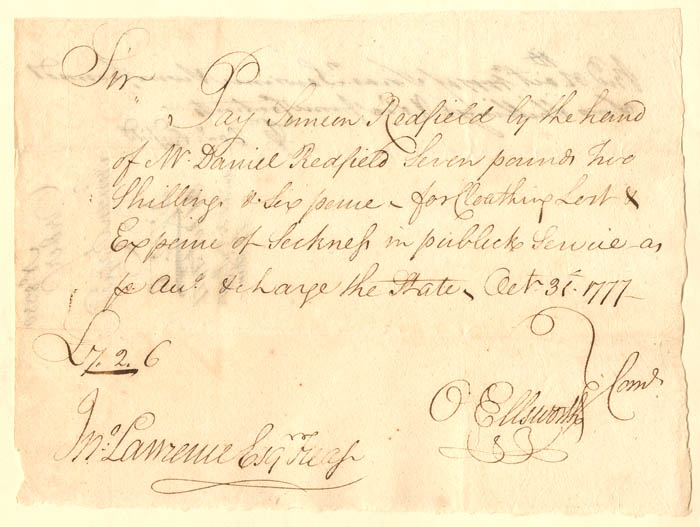 Sir
Pay Simeon Redfield by the hand
of Mr. Daniel Redfield Seven pounds Two
Shillings & Six pence – for Cloathing Lost &
Expence of Sickness in publick Service – as
pr Acct. & charge the State. Octr. 31st. 1777
£7.2.6
O Ellsworth Comtt
Jno. Lawrence Esqr. Treasr